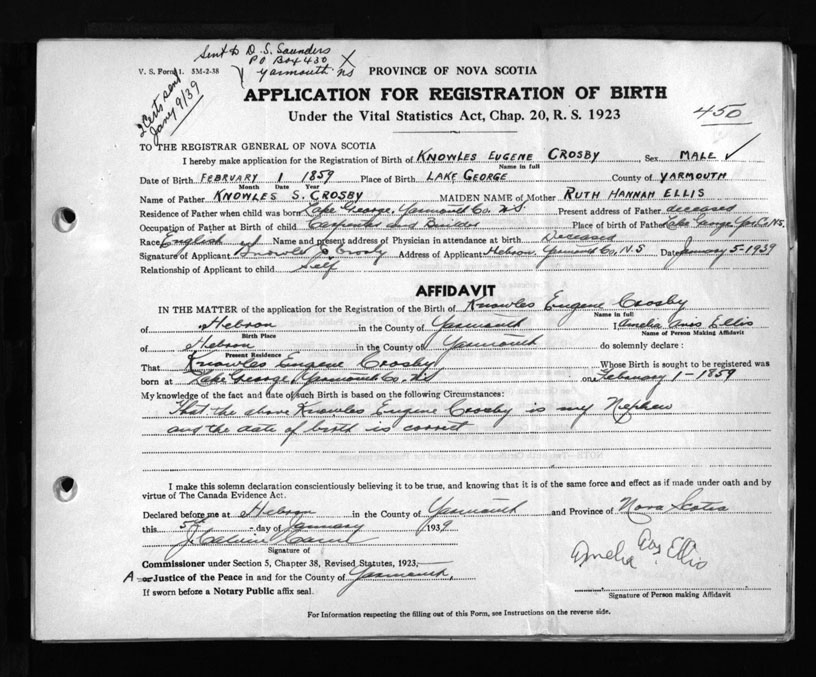 Sent to D. S. Saunders
PO Box 430 X
V. S. Form 1. 5M-2-38 Yarmouth NS PROVINCE OF NOVA SCOTIA
2 Certs sent
Jany 9/39
APPLICATION FOR REGISTRATION OF BIRTH
Under the Vital Statistics Act, Chap. 20, R. S. 1923 450
TO THE REGISTRAR GENERAL OF NOVA SCOTIA
I hereby make application for the Registration of Birth of KNOWLES EUGENE CROSBY Sex MALE ✓
Name in full
Date of Birth FEBRUARY 1 1859 Place of Birth LAKE GEORGE County of YARMOUTH
Month Date Year
Name of Father KNOWLES S. CROSBY MAIDEN NAME of Mother RUTH HANNAH ELLIS
Residence of Father when child was born Lake George, Yarmouth Co, N.S Present address of Father deceased
Occupation of Father at Birth of child Carpenter and Builder Place of birth of Father Lake George Yar. Co. N.S.
Race English Name and present address of Physician in attendance at birth Deceased
Signature of Applicant Knowles Crosby Address of Applicant Hebron, Yarmouth Co, N.S Date January 5-1939
Relationship of Applicant to child Self
AFFIDAVIT
IN THE MATTER of the application for the Registration of the Birth of Knowles Eugene Crosby
Name in full
of Hebron in the County of Yarmouth I Amelia Ellis
Birth Place Name of Person Making Affidavit
of Hebron in the County of Yarmouth do solemnly declare:
Present Residence
That Knowles Eugene Crosby Whose Birth is sought to be registered was
born at Lake George, Yarmouth Co. N.S on February 1-1859
My knowledge of the fact and date of such Birth is based on the following Circumstances:
That the above Knowles Eugene Crosby is my Nephew
and the date of birth is correct
I make this solemn declaration conscientiously believing it to be true, and knowing that it is of the same force and effect as if made under oath and by
virtue of The Canada Evidence Act.
Declared before me at Hebron in the County of Yarmouth and Province of Nova Scotia
this 5th day of January 1939
J. Calvin
Signature of
Amelia Ellis
Commissioner under Section 5, Chapter 38, Revised Statutes, 1923,
A or Justice of the Peace in and for the County of Yarmouth,
If sworn before a Notary Public affix seal.
Signature of Person making Affidavit
For Information respecting the filling out of this Form, see Instructions on the reverse side.